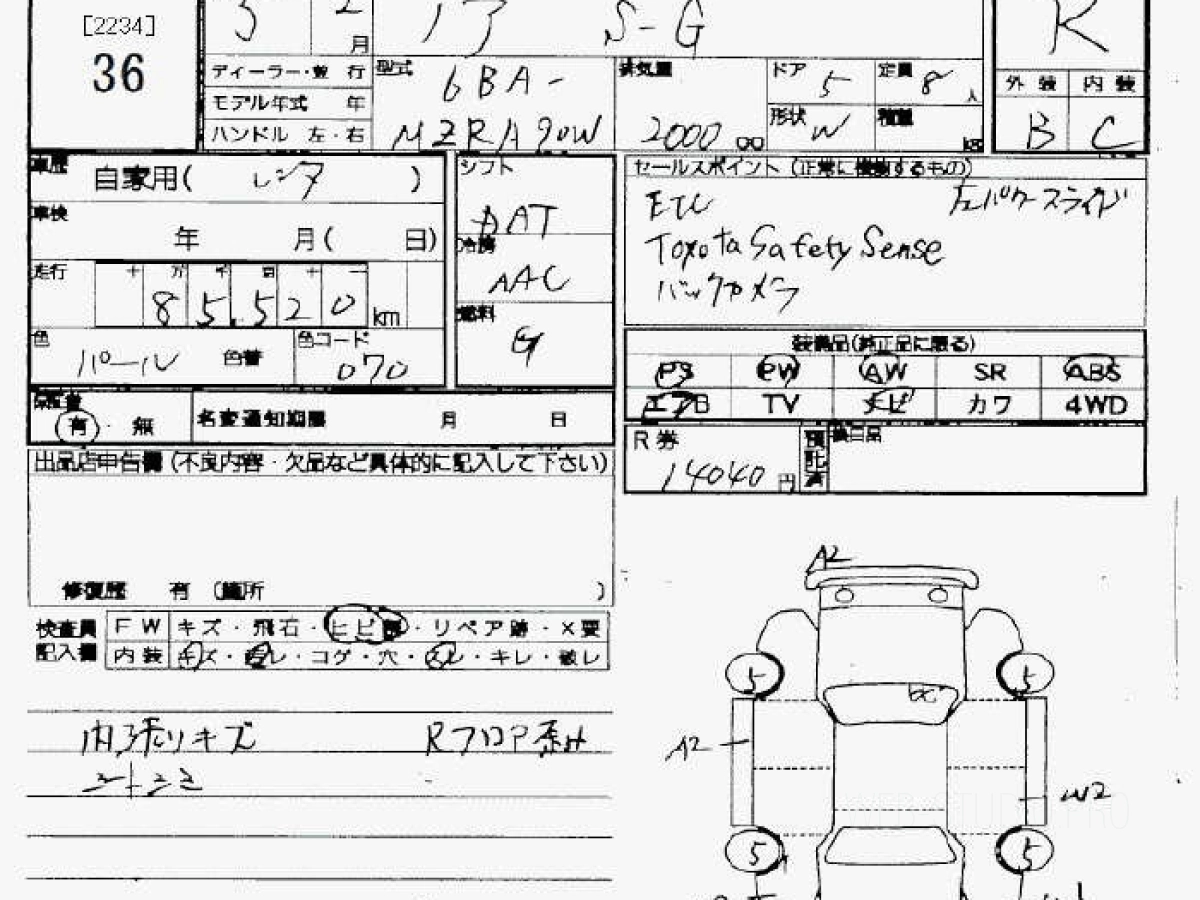 [2234]
36
5
2
月
ノア S-G
R
ディーラー・並 行
モデル年式 年
ハンドル 左・右
型式
6BA-
MZRA90W
排気量
2000
cc
ドア
5
定員
8
人
形状
W
積量
kg
外 装
内 装
B
C
車歴
自家用( レンタ )
車検
年 月( 日)
走行
十 万 千 百 十 一
8 5.5 2 0 km
色
パール 色替
色コード
070
シフト
DAT
冷房
AAC
燃料
G
セールスポイント (正常に機動するもの)
ETC
左パワースライド
Toyota Safety Sense
バックカメラ
装備品(純正品に限る)
PS PW AW SR ABS
エアB TV ナビ カワ 4WD
保証書
有 ・ 無
名変通知期限 月 日
R券
14040 円
預託済
出品店申告欄(不良内容・欠品など具体的に記入して下さい)
修復歴 有 (箇所 )
検査員
記入欄
F W キズ・飛石・ヒビ ・リペア跡・×要
内装 キズ・ レ・コゲ・穴・ スレ・キレ・破レ
内張りキズ
Rフロア歪み
A2
5
5
A2
W2
5
5